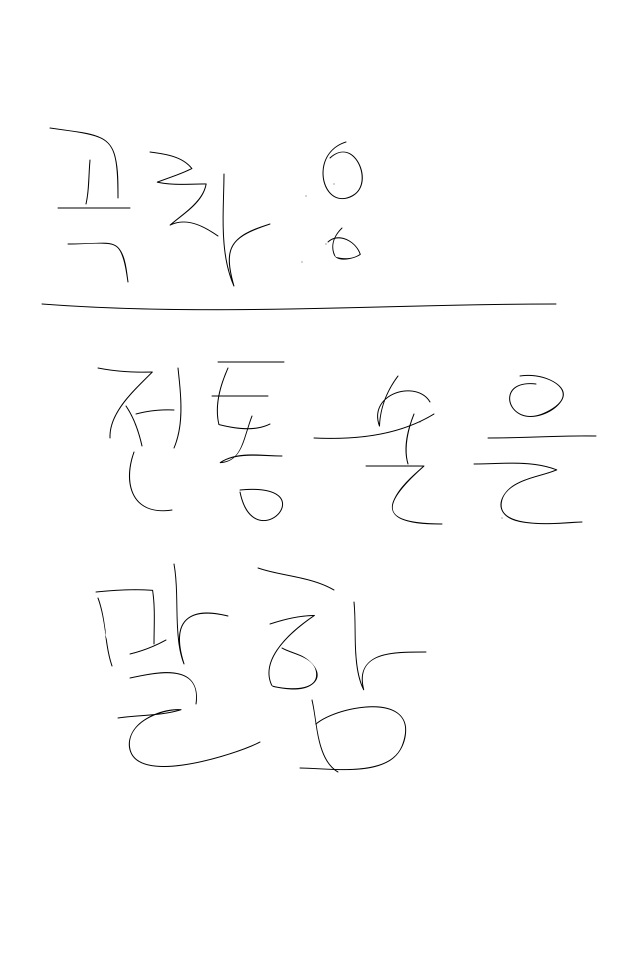 곡차 :
전통술을
말함